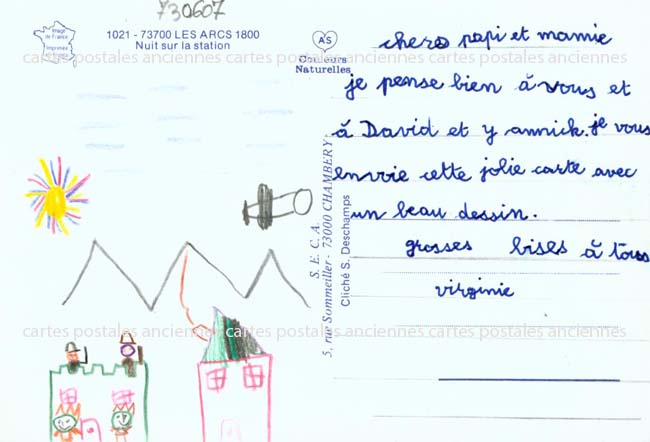 730607
Image
de France
Imprimée
en France
1021 - 73700 LES ARCS 1800
Nuit sur la station
AS
Couleurs
Naturelles
cartes postales anciennes cartes postales anciennes cartes postales anciennes
chers papi et mamie
je pense bien à vous et
à David et y annick. je vous
envoie cette jolie carte avec
un beau dessin.
grosses bises à tous
virginie
S. E. C. A.
5, rue Sommeiller - 73000 CHAMBERY
Cliché S. Deschamps
cartes postales anciennes cartes postales anciennes cartes postales anciennes